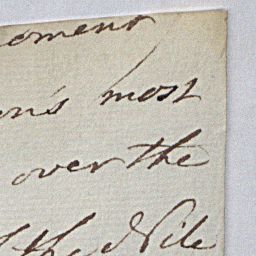 oment
on's most
over the
the Nile